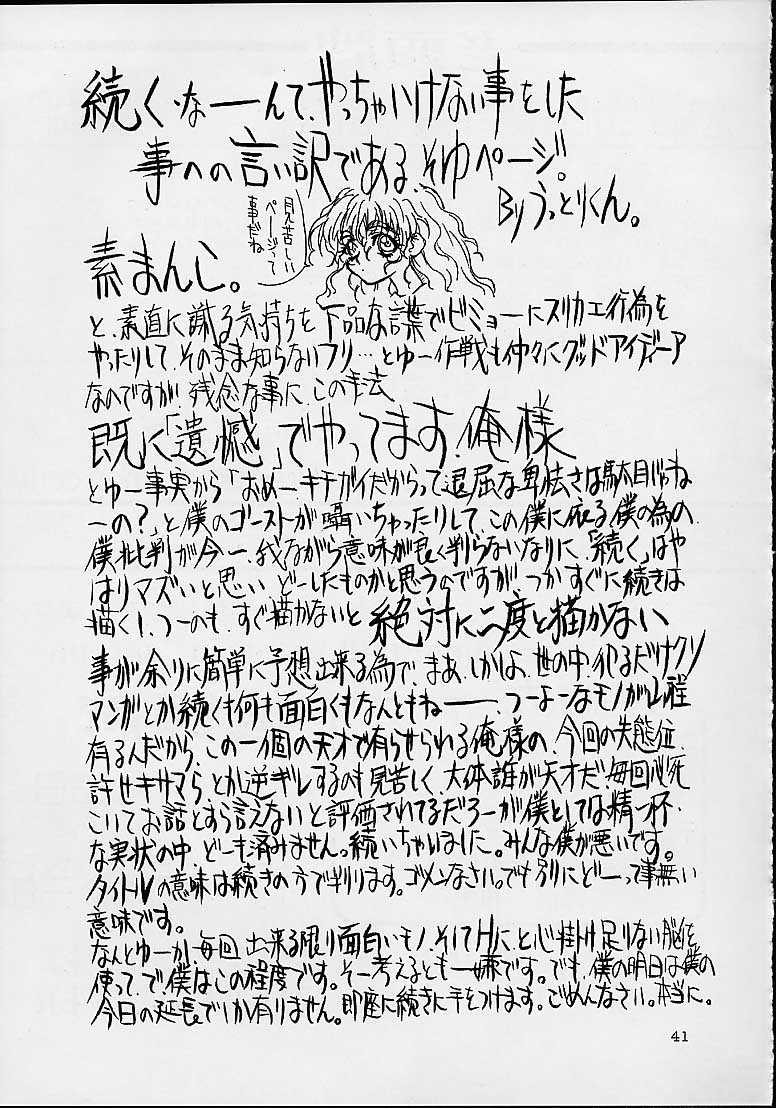 続く、なーーんて、やっちゃいけない事をした
事への言い訳である、そゆページ。
Byうっとりくん。
見苦しい
ページって
事だね
素まんし。
と、素直に謝る気持ちを下品な言葉でビミョーにスリカエ行為を
やったりして、そのまま知らないフリ…とゆー作戦も仲々にグッドアイディーア
なのですが、残念な事に、この手法
既に「遺憾」でやってます、俺様
とゆー事実から「おめーキチガイだからって退屈な卑怯さは駄目じゃね
ーの?」と僕のゴーストが囁いちゃったりして、この僕に依る僕の為の、
僕批判が今一、我ながら意味が良く判らないなりに、「続く」はや
はりマズいと思い、どーしたものかと思うのですが、つかすぐに続きは
描く!、つーのも、すぐ描かないと絶対に二度と描かない
事が余りに簡単に予想出来る為で、まあ、しかしよ、世の中、犯るだけクソ
マンガとか続くも何も面白くもなんともねーーー、つーよーなモノが山程
有るんだから、この一個の天才で有らせられる俺様の、今回の失態位、
許せキサマら、とか逆ギレするのも見苦しく、大体誰が天才だ、毎回必死
こいてお話とすら言えないと評価されてるだろーが僕としては精一杯・
な実状の中、どーも済みませんっ続いちゃいました。みんな僕が悪いです。
タイトルの意味は続きの方で判ります。ゴメンなさい。でも別にどーって事無い
意味です。
なんとゆーか、毎回、出来る限り面白いモノ、そしてHに、と心掛け足りない脳を
使って、で、僕はこの程度です。そー考えるとも一嫌です。でも、僕の明日は僕の
今日の延長でしか有りません。即座に続きに手をつけます。ごめんなさい。本当に。
41